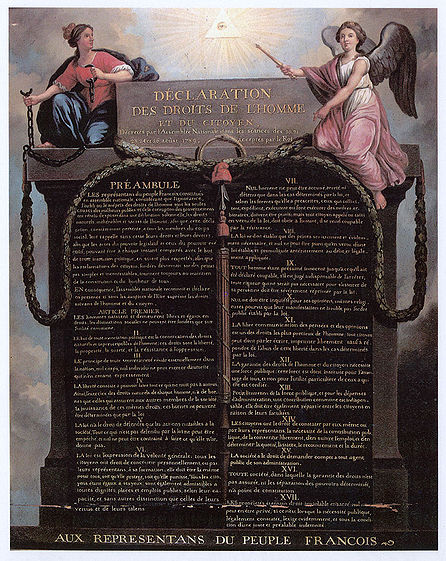 DÉCLARATION
DES DROITS DE L'HOMME
ET DU CITOYEN,
Décrétés par l'Assemblée Nationale dans les séances des 20, 21
23, 24 et 26 août 1789, acceptés par le Roi
PRÉAMBULE
LES représentans du peuple Francois, constitués
en assemblée nationale, considérant que l'ignorance,
l'oubli ou le mépris des droits de l'homme sont les seules
causes des malheurs publics et de la corruption des gouvernemens
ont résolu d'exposer, dans une déclaration solemnelle, les droits
naturels, inaliénables et sacrés de l'homme; afin que cette décla-
ration, constamment présente à tous les membres du corps
social, leur rappelle sans cesse leurs droits et leurs devoirs;
afin que les actes du pouvoir législatif et ceux du pouvoir exé-
cutif, pouvant être à chaque instant comparés avec le but
de toute institution politique, en soient plus respectés; afin que
les réclamations des citoyens, fondées désormais sur des prin-
cipes simples et incontestables, tournent toujours au maintien
de la constitution et du bonheur de tous.
EN conséquence, l'assemblée nationale reconnoit et déclare
en présence et sous les auspices de l'Etre suprême les droits
suivans de l'homme et du citoyen.
ARTICLE PREMIER.
LES hommes naissent et demeurent libres et égaux en
droits. les distinctions sociales ne peuvent être fondées que sur
l'utilité commune.
II.
LE but de toute association politique est la conservation des droits
naturels et imprescriptibles de l'homme; ces droits sont la liberté,
la propriété, la sureté et la résistance à l'oppression.
III.
LE principe de toute souveraineté réside essentiellement dans
la nation, nul corps, nul individu ne peut exercer d'autorité
qui n'en émane expressément.
IV.
LA liberté consiste à pouvoir faire tout ce qui ne nuit pas à autrui
Ainsi, l'exercice des droits naturels de chaque homme, n'a de bor-
nes que celles qui assurent aux autres membres de la société
la jouissance de ces mêmes droits; ces bornes ne peuvent
être déterminées que par la loi
V.
LA loi n'a le droit de défendre que les actions nuisibles à la
société. Tout ce qui n'est pas défendu par la loi ne peut être
empêché, et nul ne peut être contraint à faire ce qu'elle n'or-
donne pas.
VI.
LA loi est l'expression de la volonté générale; tous les
citoyens ont droit de concourir personnellement, ou par
leurs représentans, à sa formation; elle doit être la même
pour tous, soit qu'elle protege, soit qu'elle punisse. Tous les cito-
yens étant égaux à ses yeux, sont également admissibles à
toutes dignités, places et emplois publics, selon leur capa-
cité, et sans autres distinction que celles de leurs
vertus et de leurs talens.
VII.
NUL homme ne peut être accusé, arrêté ni
détenu que dans les cas déterminés par la loi, et
selon les formes qu'elle a prescrites, ceux qui sollici-
tent, expédient, exécutent ou font exécuter des ordres ar-
bitraires, doivent être punis; mais tout citoyen appelé ou saisi
en vertu de la loi, doit obéir à l'instant, il se rend coupable
par la résistance.
VIII.
LA loi ne doit établir que des peines strictement et évidem-
ment nécessaires, et nul ne peut être puni qu'en vertu d'une
loi établie et promulguée antérieurement au délit, et légale-
ment appliquée.
IX.
TOUT homme étant présumé innocent jusqu'à ce qu'il ait
été déclaré coupable, s'il est jugé indispensable de l'arrêter,
toute rigueur qui ne serait pas nécessaire pour s'assurer de
sa personne doit être sévèrement réprimée par la loi.
X.
NUL ne doit être inquiété pour ses opinions, mêmes religi-
euses pourvu que leur manifestation ne trouble pas l'ordre
public établi par la loi.
XI.
LA libre communication des pensées et des opinions est
un des droits les plus précieux de l'homme; tout citoyen
peut donc parler, écrire, imprimer librement, sauf à ré-
pondre de l'abus de cette liberté dans les cas déterminés
par la loi.
XII.
LA garantie des droits de l'homme et du citoyen nécessite
une force publique; cette force est donc instituée pour l'avan-
tage de tous, et non pour l'utilité particulière de ceux à qui
elle est confiée.
XIII.
Pour l'entretien de la force publique, et pour les dépenses
d'administration, une contribution commune est indispen-
sable; elle doit être également répartie entre les citoyens en
raison de leurs facultés.
XIV.
LES citoyens ont le droit de constater par eux même ou
par leurs représentans, la nécessité de la contribution pub-
lique, de la consentir librement, d'en suivre l'emploi, et d'en
déterminer la quotité, l'assiette, le recouvrement et la durée.
XV.
LA société a le droit de demander compte à tout agent
public de son administration.
XVI.
TOUTE société, dans laquelle la garantie des droits n'est
pas assurée, ni la séparation des pouvoirs déterminée,
n'a point de constitution.
XVII.
LES propriétés étant un droit inviolable et sacré, nul ne
peut en être privé, si ce n'est lorsque la nécessité publique,
légalement constatée, l'exige évidemment, et sous la condi-
tion d'une juste et préalable indemnité.
AUX REPRESENTANS DU PEUPLE FRANCOIS